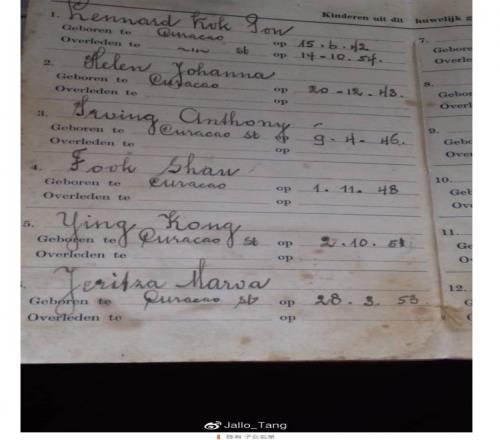 Kinderen uit dit huwelijk
1. Kennard Kok Son
Geboren te Curacao op 15.6.42
Overleden te st op 14-10.54.
2. Helen Johanna
Geboren te Curacao op 20-12.43.
Overleden te op
3. Irving Anthony
Geboren te Curacao st op 9.4.46.
Overleden te op
4. Fook Shau
Geboren te Curacao op 1.11.48
Overleden te op
5. Ying Kong
Geboren te Curacao st op 2.10.51
Overleden te op
Jeritza Marva
Geboren te Curacao st op 28.3.53.
Overleden te op
7.
8.
9.
10.
11.
12.
Jallo_Tang